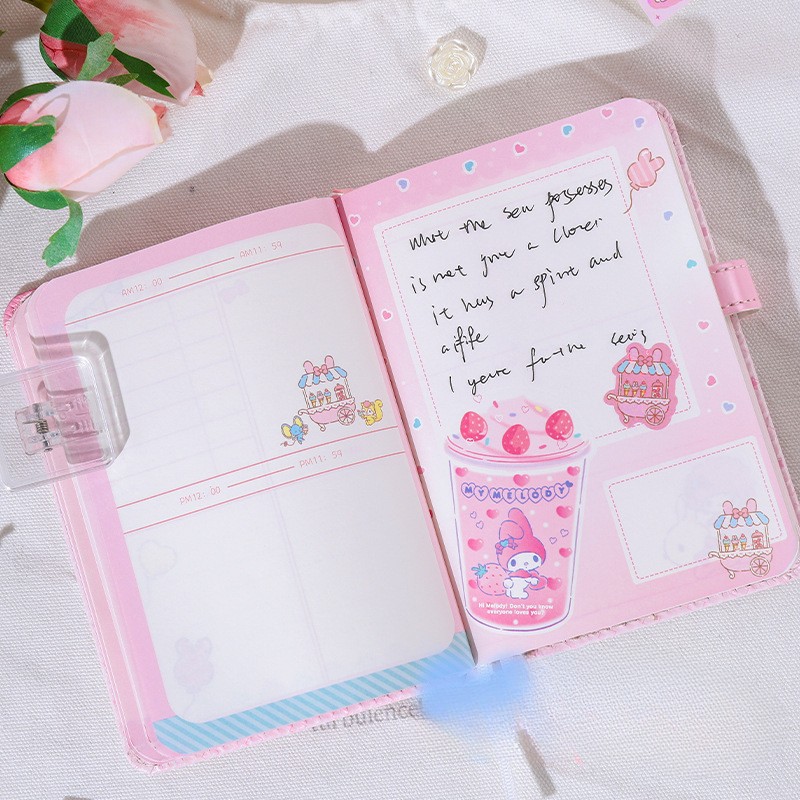 AM12: 00 AM11: 59
PM12: 00 PM11: 59
what the sea possesses
is not give a lover
it has a spirit and
a life
I yearn for the sea's
MY MELODY
Hi Melody! Don't you know
everyone loves you!!
turbulence